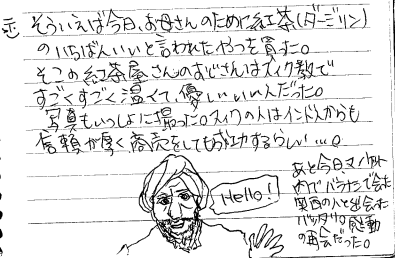 そういえば今日、お母さんのために紅茶(ダージリン)
のいちばんいいと言われたやつを買った。
そこの紅茶屋さんのおじさんはスィク教で
すごくすごく温くて、優しいいい人だった。
写真もいっしょに撮った。スィクの人はインド人からも
信頼が厚く商売をしても成功するらしい…。
Hello!
あと今日
内でバラナシで会た
関西の人と出会た
バッタリ。感動
の再会だった。